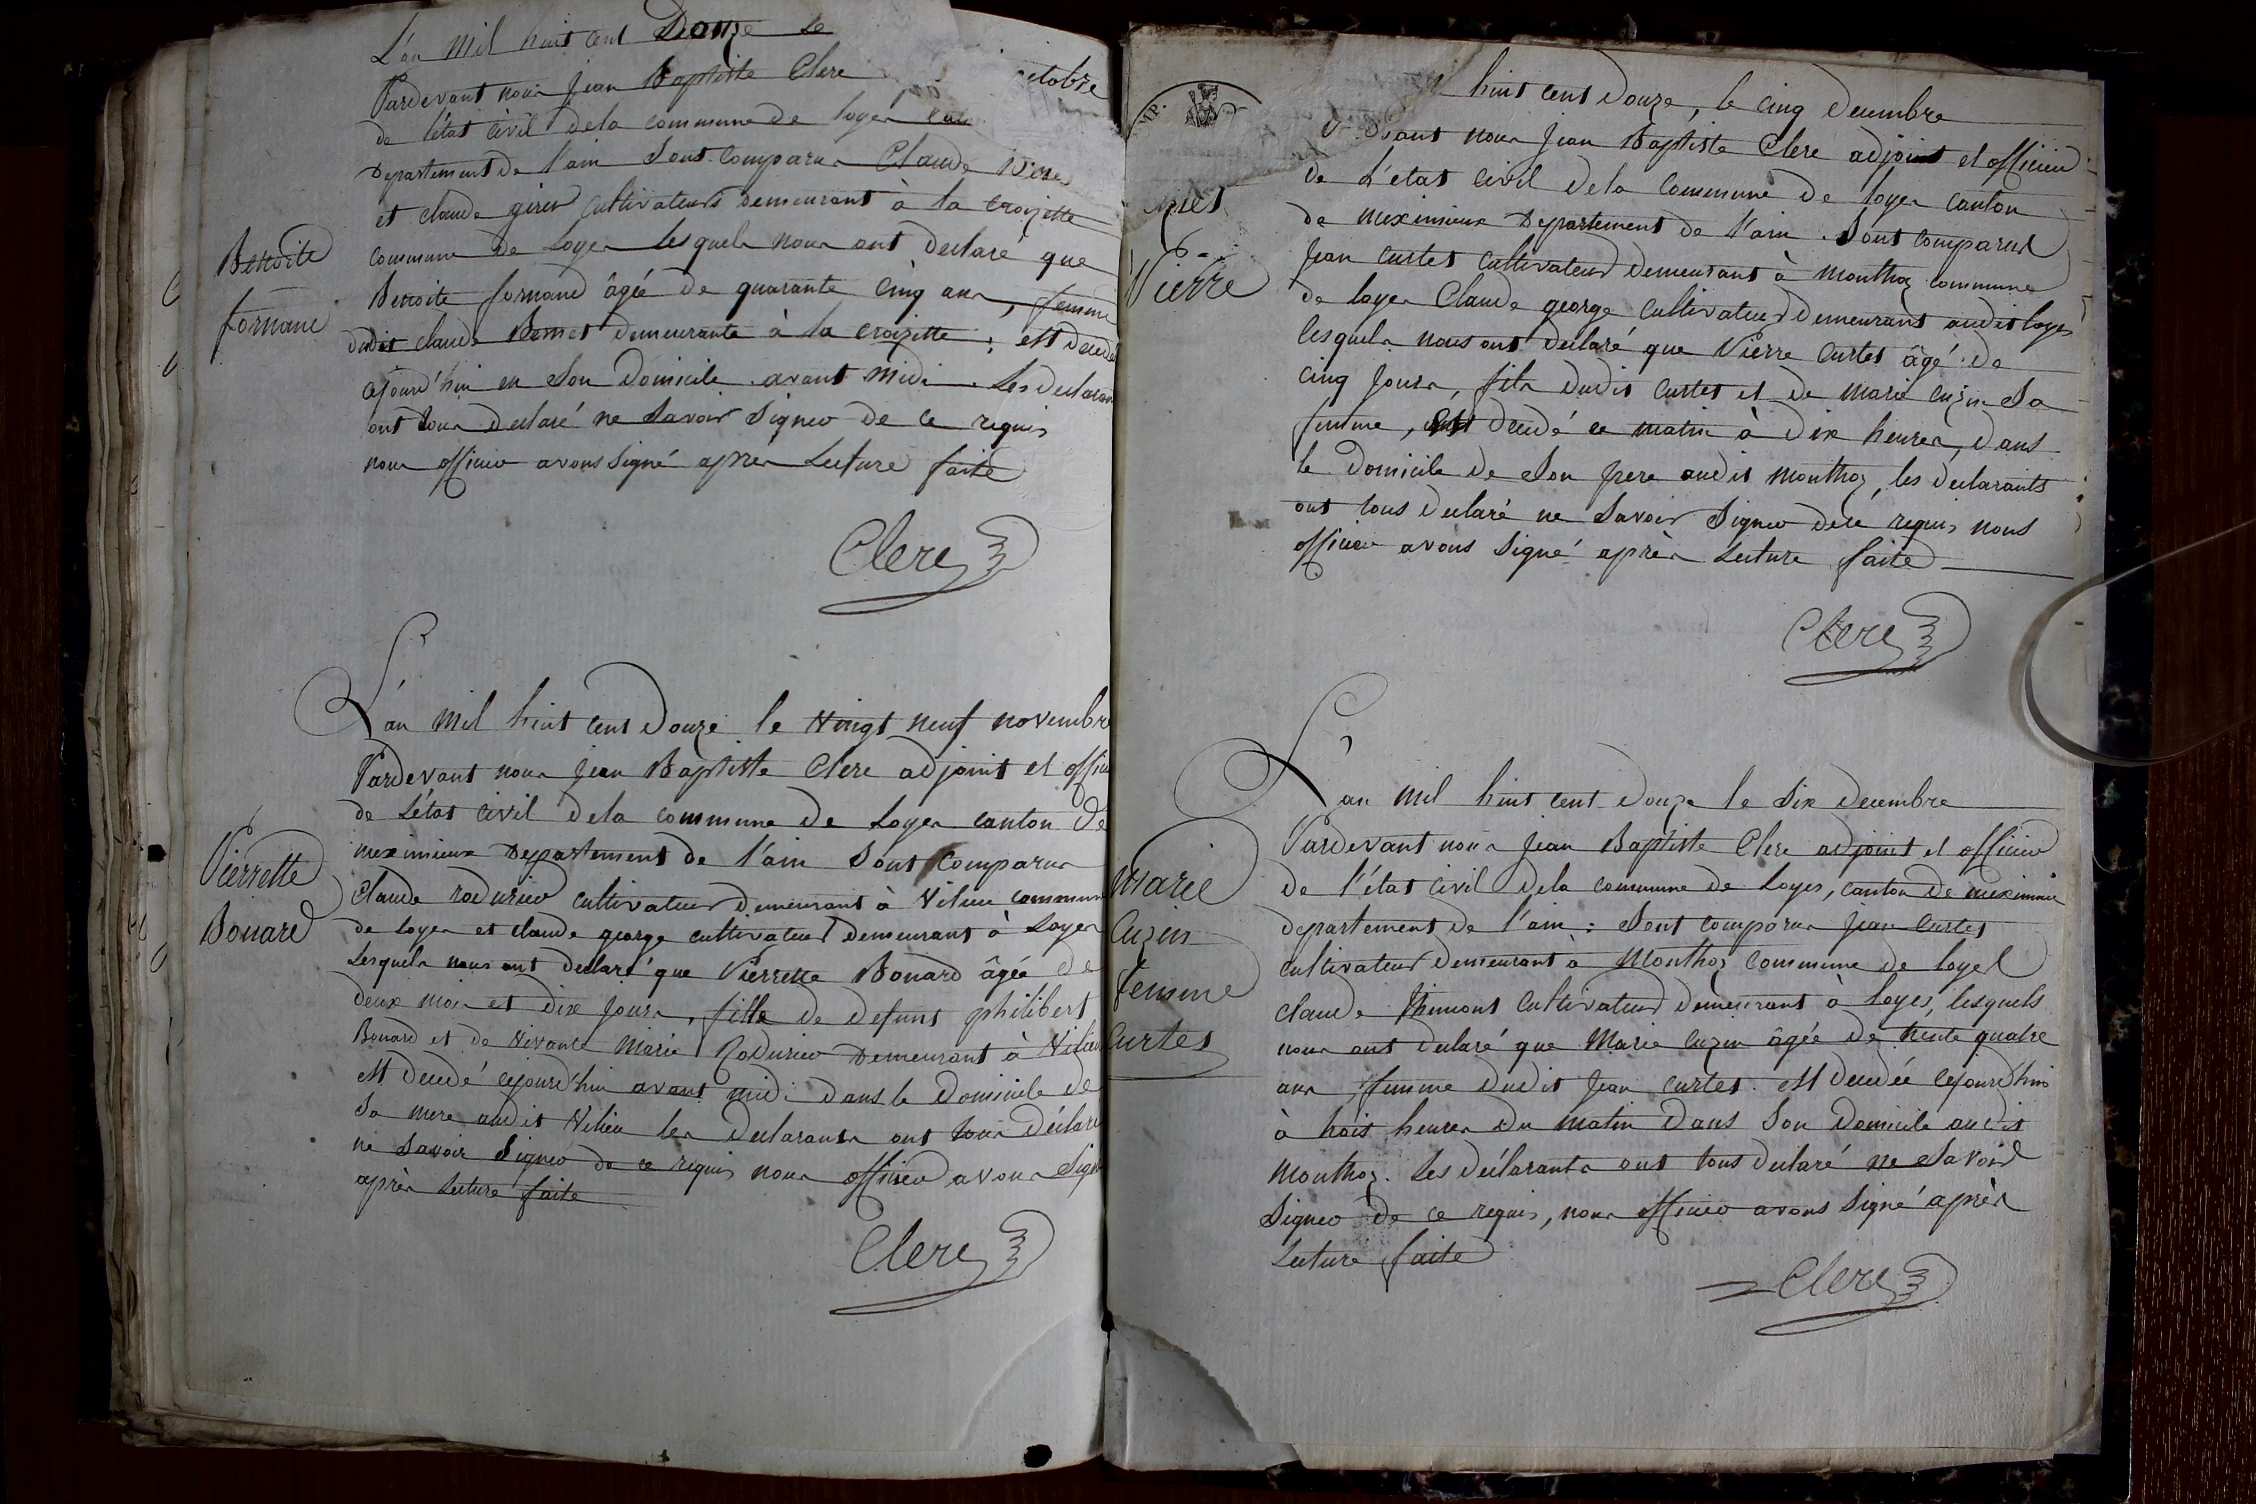 L'an mil huit cent Douze Le
octobre
Pardevant nous Jean Baptiste Clerc
de l'état civil dela commune de loyes
Departement de l'ain Sont comparus Claude
et claude girer cultivateurs Demeurant à la croizette
commune de Loyes lesquels nous ont declaré que
Benoite
Benoite fornand âgée de quarante cinq ans, femme
fornand
dudit claude demeurante à la croizette ; est decedé
cejourd'hui en Son Domicile avant Midi. Les declarants
ont tous declaré ne Savoir Signer de ce requis
nous officier avons Signé après Lecture faite
Clerc
L'an mil huit cent Douze le vingt neuf novembre
Pardevant nous Jean Baptiste Clerc adjoint et officier
de L'état civil dela commune de Loyes canton de
meximieux Departement de l'ain Sont comparus
Pierrette
Bouard
claude rodurier cultivateur Demeurant à Vilieu commune
de loyes et claude george cultivateur demeurant à Loyes
Lesquels nous ont declaré que Pierrette Bouard âgée de
deux mois et dix jours, fille de defunt philibert
Bouard et de vivante Marie Rodurier Demeurant à Vilieu
est decedé cejourd'hui avant midi dans le Domicile de
Sa mere audit Vilieu les declarants ont tous déclaré
ne Savoir Signer de ce requis nous officier avons Signé
après Lecture faite
Clerc
huit cent Douze, le cinq Decembre
devant nous Jean Baptiste Clerc adjoint et officier
de L'état civil dela Commune de loyes canton
de meximieux Departement de l'ain. Sont comparus
Pierre
Jean curtet cultivateur demeurant à monthoz commune
de loyes Claude george cultivateur Demeurant audit loyes
lesquels nous ont declaré que Pierre curtet âgé de
cinq jours, fils dudit curtet et de marie cuzin Sa
femme, est decedé ce matin à Dix heures, dans
le Domicile de Son pere audit monthoz, les declarants
ont tous declaré ne Savoir Signer dece requis nous
officier avons Signé après Lecture faite
Clerc
L'an mil huit cent Douze le Six decembre
Pardevant nous Jean Baptiste Clerc adjoint et officier
marie
cuzin
femme
curtet
de l'état civil dela commune de Loyes, canton de meximieux
departement de l'ain : Sont comparus Jean Curtet
cultivateur demeurant à Monthoz commune de loyes
claude cultivateur demeurant à loyes, lesquels
nous ont declaré que Marie cuzin âgée de trente quatre
ans, femme dudit Jean curtet. est decedée cejourd'hui
à trois heures du matin dans Son Domicile audit
Monthoz. Les déclarants ont tous declaré ne Savoir
Signer de ce requis, nous officier avons Signé après
Lecture faite
Clerc